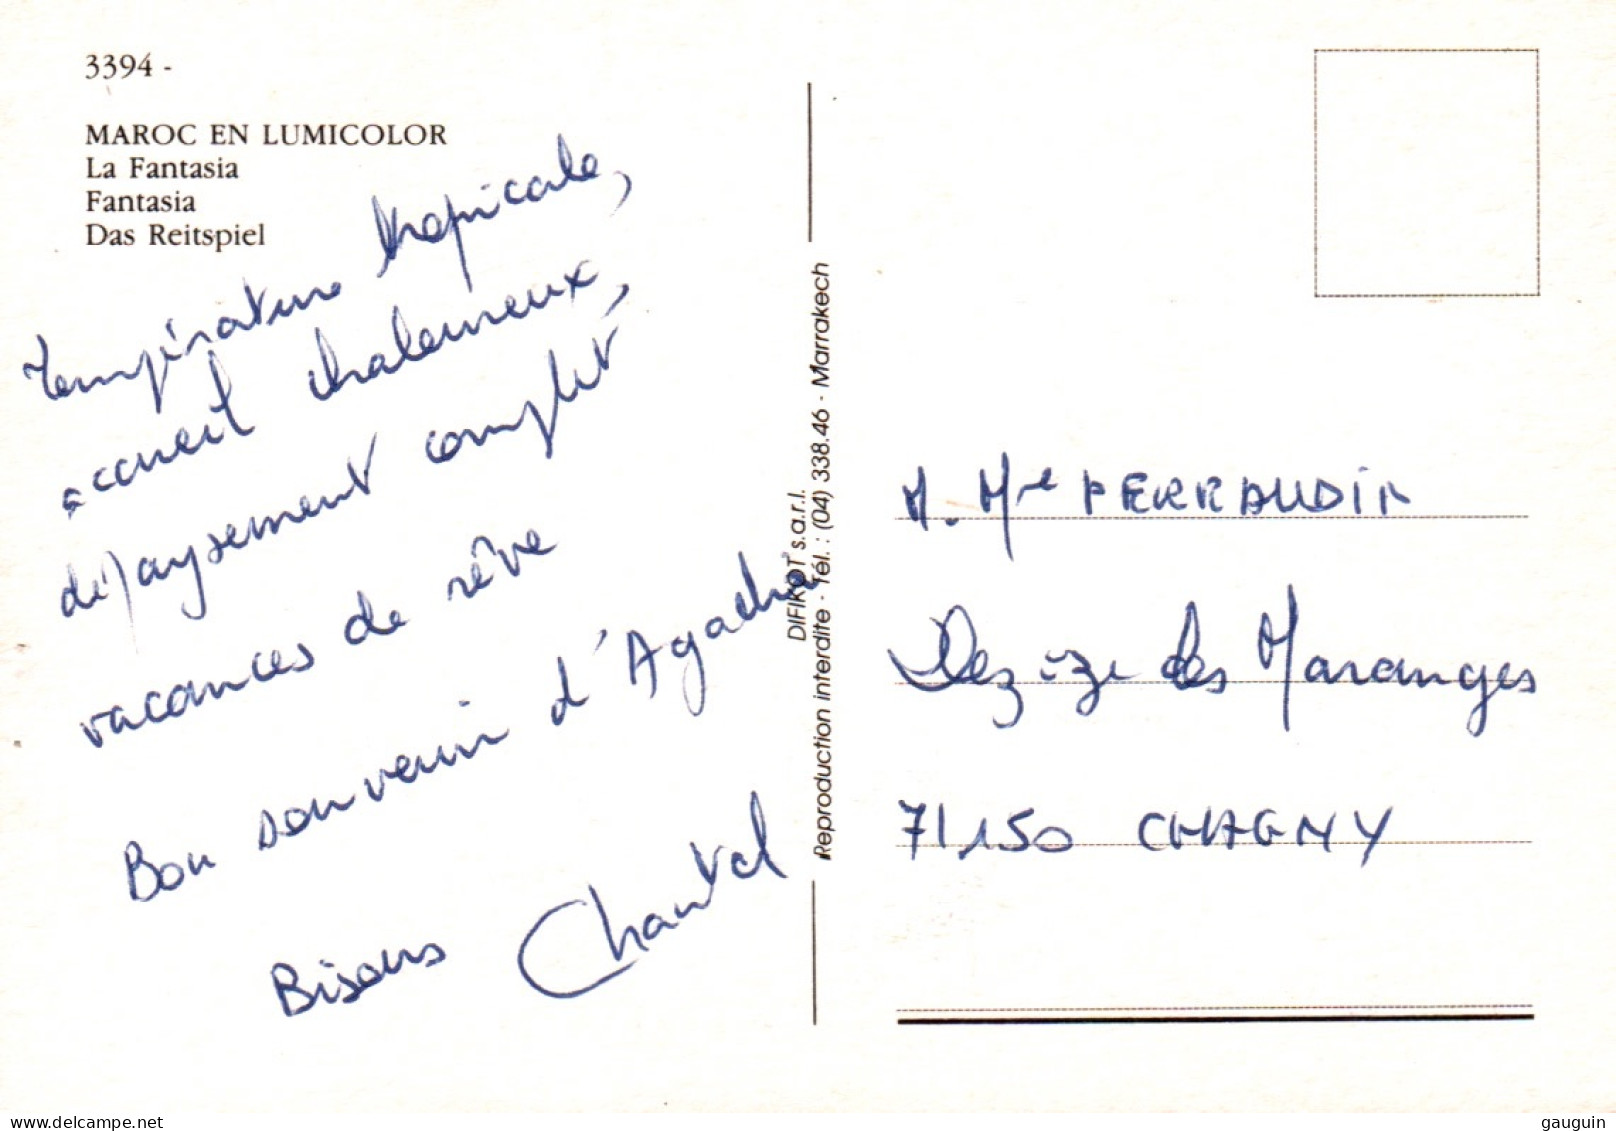 3394 -
MAROC EN LUMICOLOR
La Fantasia
Fantasia
Das Reitspiel
température tropicale,
accueil chaleureux,
dépaysement complet,
vacances de rêve
Bon souvenir d'Agadir
Bisous Chantal
DIFIKOT s.a.r.l.
Reproduction interdite - Tél. : (04) 338.46 - Marrakech
M. Me PERRAUDIN
Dezize des Maranges
71150 CHAGNY
www.delcampe.net
gauguin